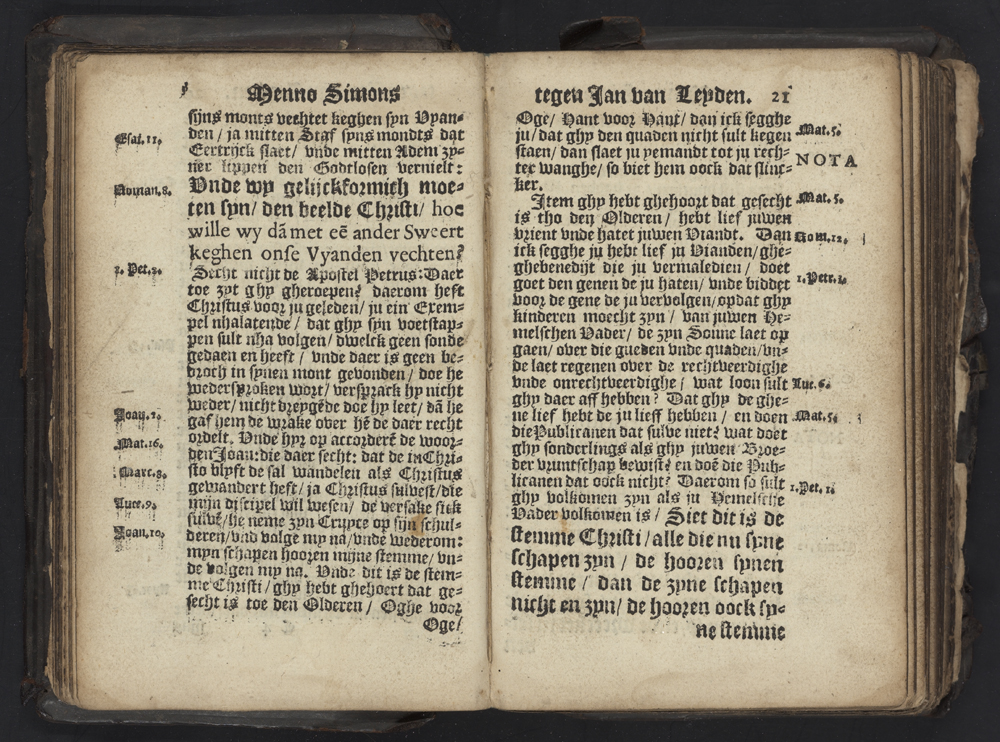 Menno Simons
sijns monts vechtet keghen syn Vyan-
den / ja mitten Staf syns mondts dat
Eertrijck slaet / vnde mitten Adem zy-
ner lippen den Godtlosen vernielt:
Esai. 11.
Vnde wy gelijckformich moe-
ten syn / den beelde Christi / hoe
wille wy dā met eē ander Sweert
keghen onse Vyanden vechten?
Roman. 8.
Secht nicht de Apostel Petrus: Daer
toe zyt ghy gheroepen? daerom heft
Christus voor ju geleden / ju ein Exem-
pel nhalatende / dat ghy syn voetstap-
pen sult nha volgen / dwelck geen sonde
gedaen en heeft / vnde daer is geen be-
droch in synen mont gevonden / doe he
wedersproken wort / versprack hy nicht
weder / nicht dreygēde doe hy leet / dā he
gaf hem de wrake over hē de daer recht
ordelt. Vnde hyr op accorderē de woor-
den Joan: die daer secht: dat de in Chri-
sto blyft de sal wandelen als Christus
gewandert heft / ja Christus sulvest / die
mijn discipel wil wesen / de versake sick
sulvē / he neme zyn Cruyce op sijn schul-
deren / vnd volge my na / vnde wederom:
myn schapen hooren mijne stemme / vn-
de volgen my na. Vnde dit is de stem-
me Christi / ghy hebt ghehoert dat ge-
secht is toe den Olderen / Oghe voor
Oge /
1. Pet. 2.
Joan. 2.
Mat. 16.
Marc. 8.
Luce. 9.
Joan. 10.
tegen Jan van Leyden. 21
Oge / Hant voor Hant / dan ick segghe
ju / dat ghy den quaden nicht sult kegen
staen / dan slaet ju yemandt tot ju rech-
ter wanghe / so biet hem oock dat slinc-
ker.
Mat. 5.
NOTA
Item ghy hebt ghehoort dat gesecht
is tho den Olderen / hebt lief juwen
vrient vnde hatet juwen Viandt. Dan
ick segghe ju hebt lief ju Vianden / ghe-
ghebenedijt die ju vermaledien / doet
goet den genen de ju haten / vnde biddet
voor de gene de ju vervolgen / opdat ghy
kinderen moecht zyn / van juwen He-
melschen Vader / de zyn Sonne laet op
gaen / over die gueden vnde quaden / vn-
de laet regenen over de rechtveerdighe
vnde onrechtveerdighe / wat loon sult
ghy daer aff hebben? Dat ghy de ghe-
ne lief hebt de ju lieff hebben / en doen
die Publicanen dat sulve niet? wat doet
ghy sonderlings als ghy juwen Broe-
der vruntschap bewist? en doē die Pub-
licanen dat oock nicht? Daerom so sult
ghy volkomen zyn als ju Hemelsche
Vader volkomen is / Siet dit is de
stemme Christi / alle die nu syne
schapen zyn / de hooren synen
stemme / dan de zyne schapen
nicht en zyn / de hooren oock sy-
ne stemme
Mat. 5.
Rom. 12.
1. Petr.
Luc. 6.
Mat. 5.
1. Pet. 1.